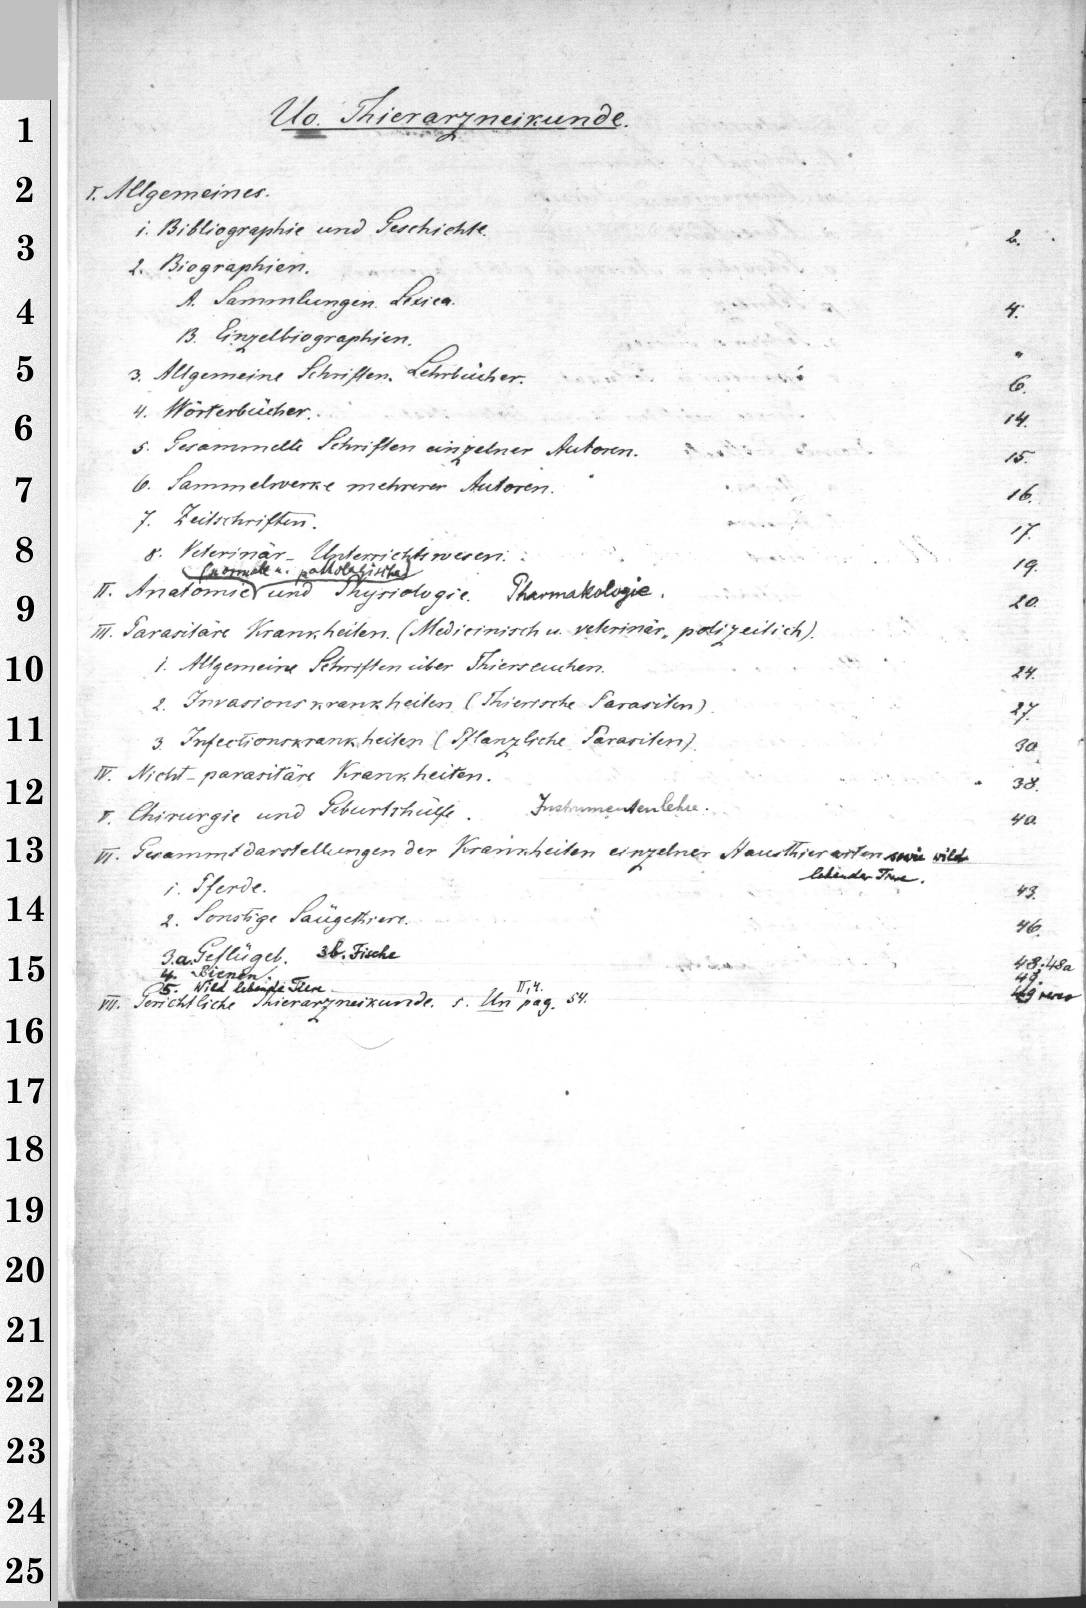 Uo. Thierarzneikunde.
I. Allgemeines.
1. Bibliographie und Geschichte. 2.
2. Biographien.
A. Sammlungen. Lexica. 4.
B. Einzelbiographien. "
3. Allgemeine Schriften. Lehrbücher. 6.
4. Wörterbücher. 14.
5. Gesammelte Schriften einzelner Autoren. 15.
6. Sammelwerke mehrerer Autoren. 16.
7. Zeitschriften. 17.
8. Veterinär-Unterrichtswesen. 19.
(normale u. pathologische)
II. Anatomie und Physiologie. Pharmakologie. 20.
III. Parasitäre Krankheiten. (Medicinisch u. veterinär-polizeilich).
1. Allgemeine Schriften über Thierseuchen. 24.
2. Invasionskrankheiten (Thierische Parasiten). 27.
3. Infectionskrankheiten (Pflanzliche Parasiten). 30
IV. Nicht-parasitäre Krankheiten. 38.
V. Chirurgie und Geburtshülfe. Instrumentenlehre. 40
VI. Gesammtdarstellungen der Krankheiten einzelner Hausthierarten sowie wild
lebender Tiere.
1. Pferde. 43.
2. Sonstige Säugethiere. 46.
3.a. Geflügel. 3b. Fische 48. 48a
4. Bienen. 49.
5. Wild lebende Tiere 49 verso
VII. Gerichtliche Thierarzneikunde. s. Un II,4. pag. 54.
1
2
3
4
5
6
7
8
9
10
11
12
13
14
15
16
17
18
19
20
21
22
23
24
25